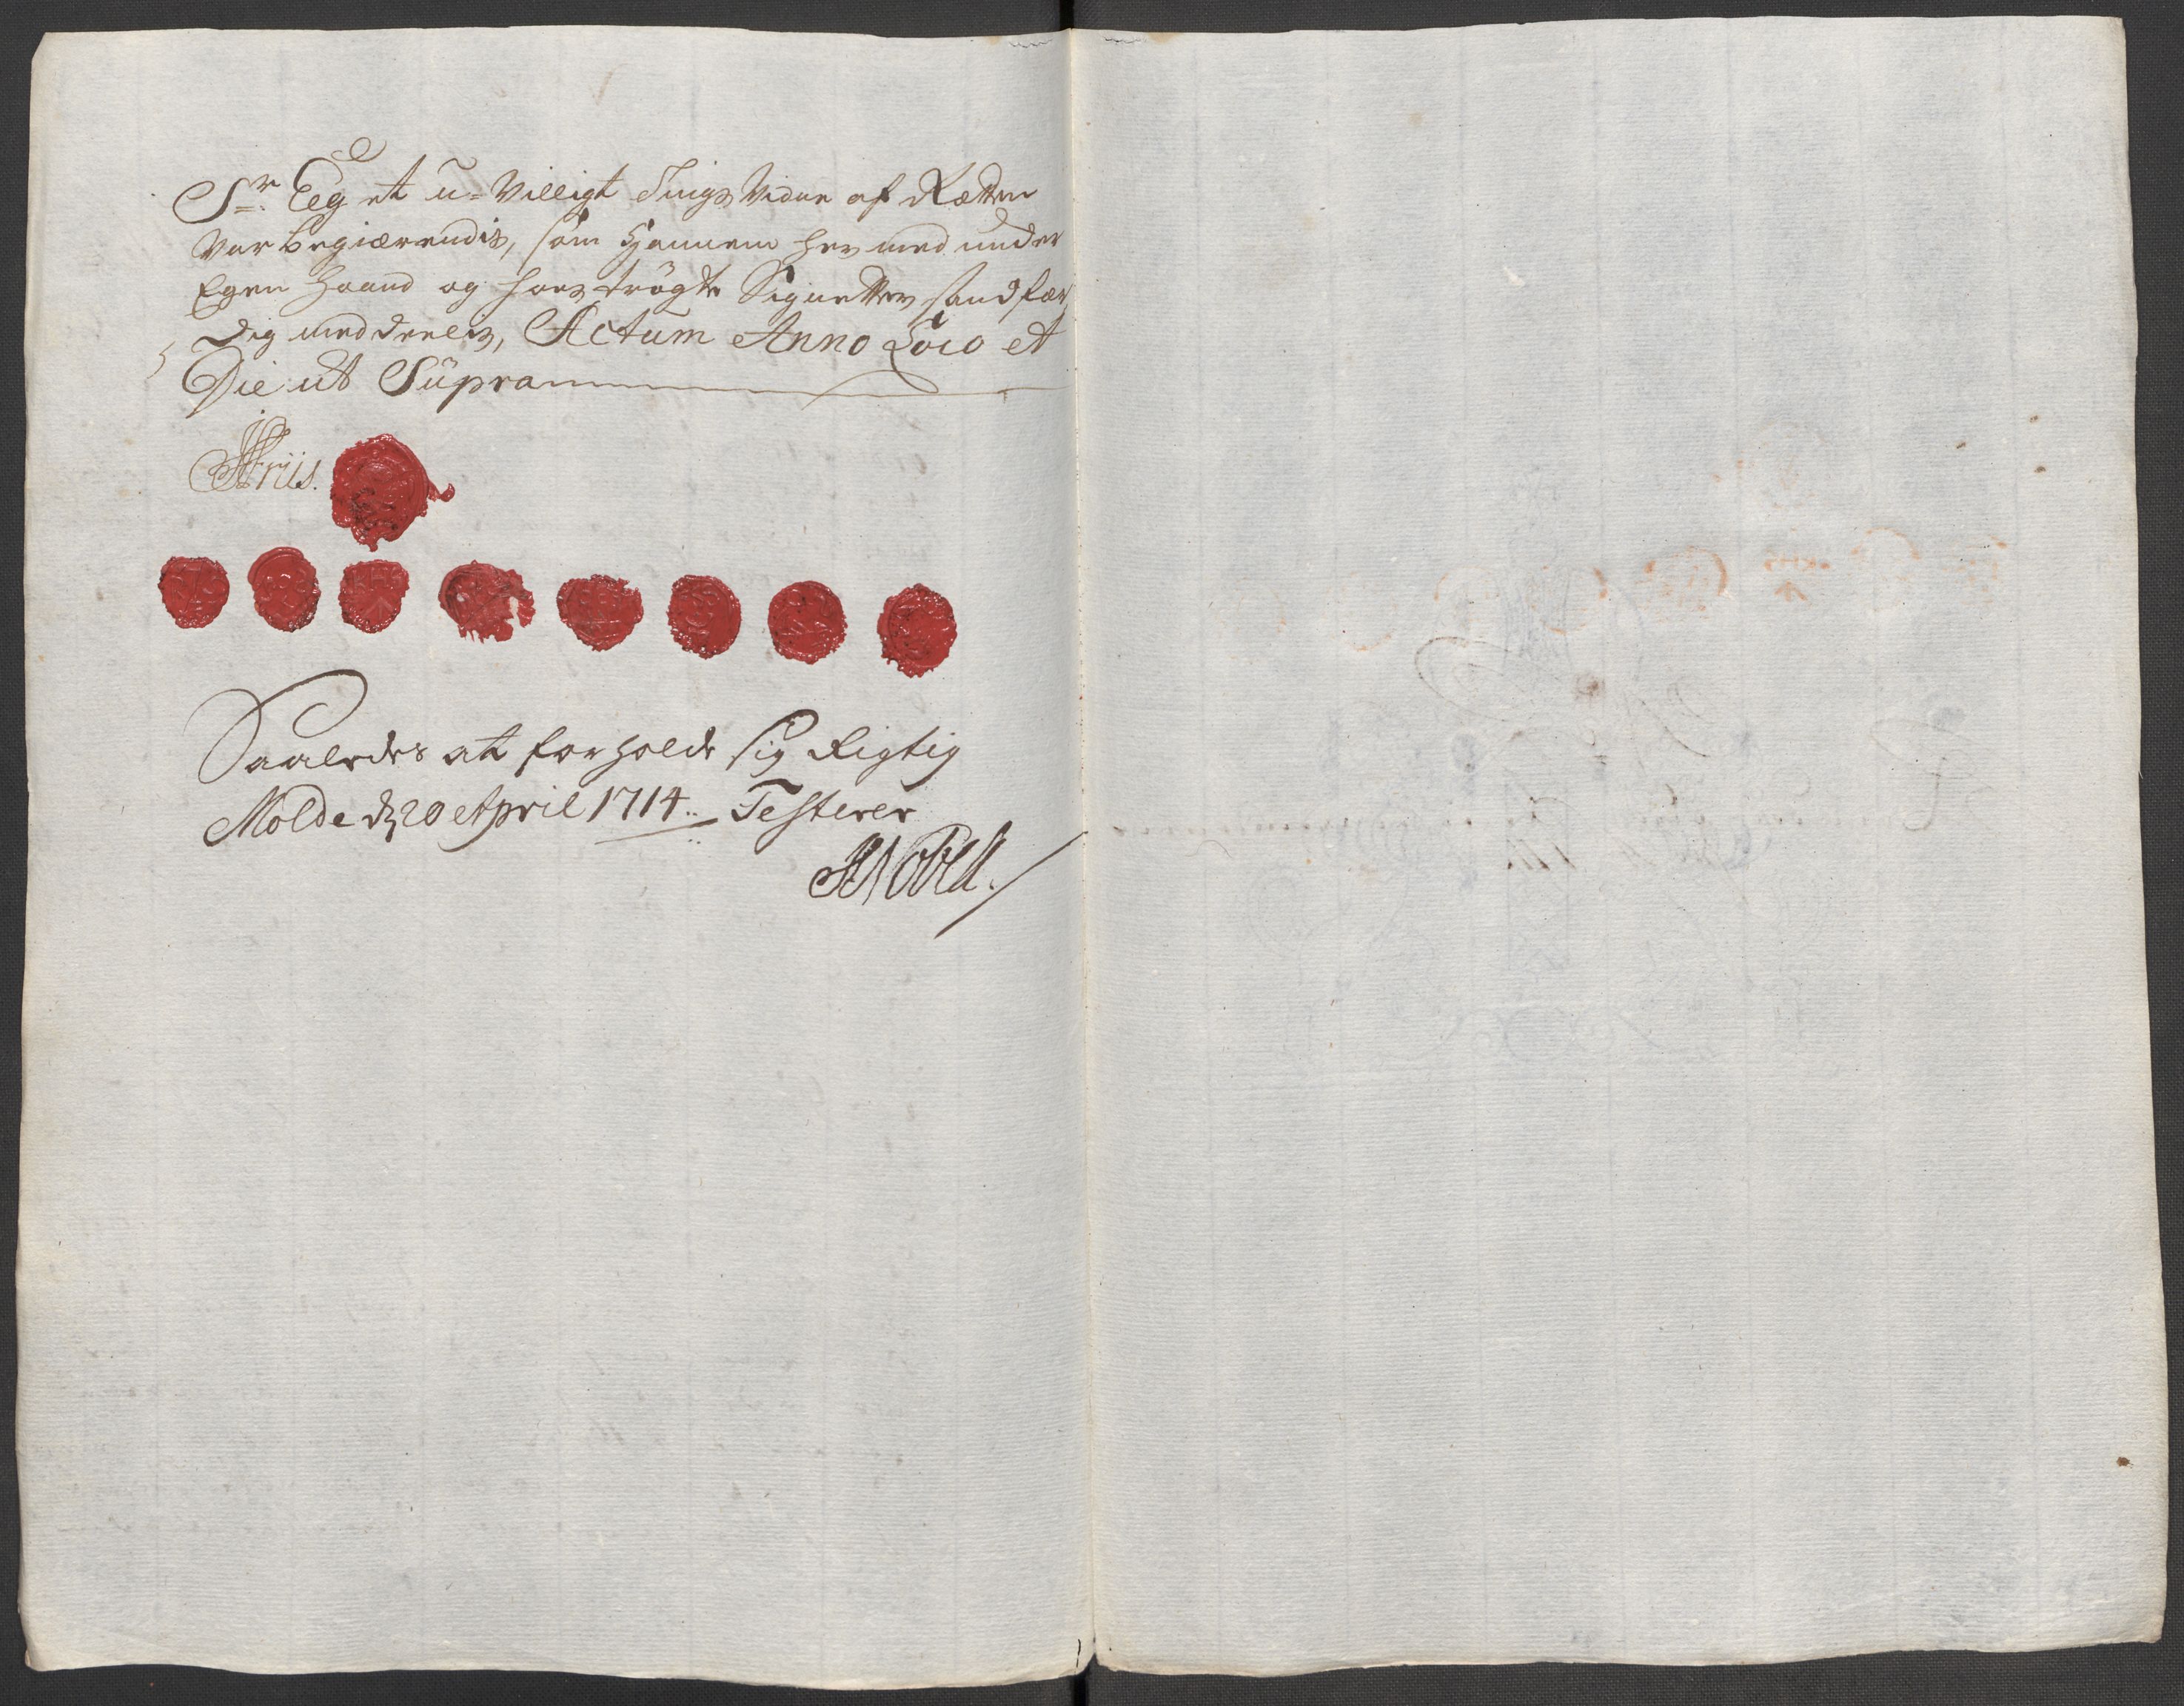 Sr: Eeg et u-Villigt Tings Vidne af Rætten
Var begiærendis, som Hannem her med under
Egen Haand og hoes trögte Signetter sandfær,
dig meddeelis, Actum Anno Loco et
Die ut Supra
Friis.
Saaledes at forholde sig Rigtig
Molde d 20 April 1714. Testerer